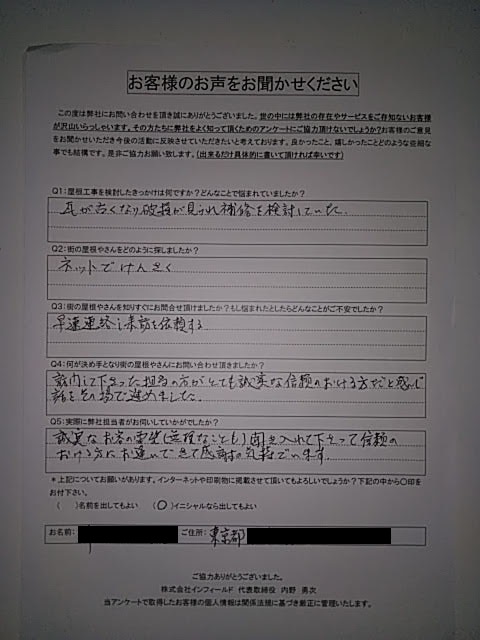 お客様のお声をお聞かせください
この度は弊社にお問い合わせを頂き誠にありがとうございました。世の中には弊社の存在やサービスをご存知ないお客様
が沢山いらっしゃいます。その方たちに弊社をよく知って頂くためのアンケートにご協力頂けないでしょうか?お客様のご意見
をお聞かせいただき今後の活動に反映させていただきたいと考えております。良かったこと、嬉しかったことどのような些細な
事でも結構です。是非ご協力お願い致します。(出来るだけ具体的に書いて頂ければ幸いです)
Q1:屋根工事を検討したきっかけは何ですか?どんなことで悩まれていましたか?
瓦が古くなり破損が見られ補修を検討していた。
Q2:街の屋根やさんをどのように探しましたか?
ネットでけんさく
Q3:街の屋根やさんを知りすぐにお問合せ頂けましたか?もし悩まれたとしたらどんなことがご不安でしたか?
早速連絡し来訪を依頼する
Q4:何が決め手となり街の屋根やさんにお問い合わせ頂きましたか?
案内して下さった担当の方がとても誠実な信頼のおける方だと感じ
話をその場で進めました。
Q5:実際に弊社担当者がお伺いしていかがでしたか?
誠実なお客の要望(無理なことも)聞き入れて下さって信頼の
おける方にお逢いできて感謝の気持でいます。
*上記についてお願いがあります。インターネットや印刷物に掲載させて頂いてもよろしいでしょうか?下記の中から〇印を
お付下さい。
( )名前を出してもよい (〇)イニシャルなら出してもよい
お名前: ご住所: 東京都
ご協力ありがとうございました。
株式会社インフィールド 代表取締役 内野 勇次
当アンケートで取得したお客様の個人情報は関係法規に基づき厳正に管理いたします。